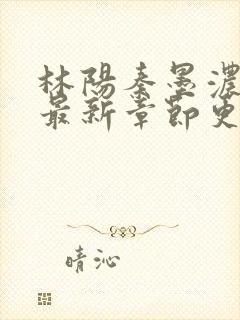 林陽秦墨濃
最新章節更
晴沁